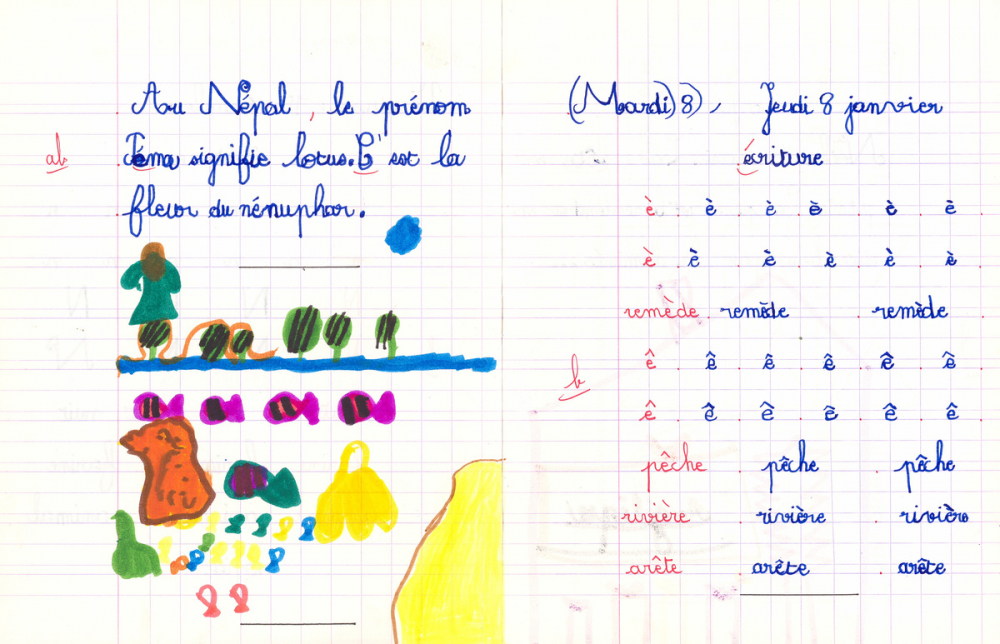 Au Népal, le prénom
ab Téma signifie lotus. C'est la
fleur du nénuphar.
(Mardi) 8), Jeudi 8 janvier
écriture
è è è è è è
è è è è è è
remède remède remède
b ê ê ê ê ê ê
ê ê ê ê ê ê
pêche pêche pêche
rivière rivière rivière
arête arête arête